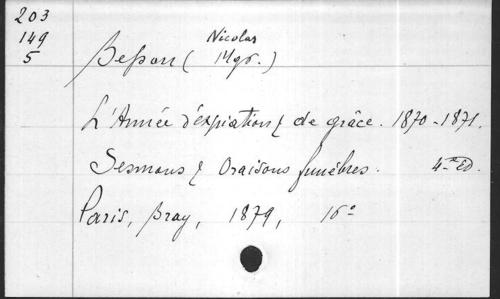 203
149
5
Nicolas
Besson (Mgr.)
L'Année d'expiation & de grâce. 1870-1871.
Sermons & Oraisons funèbres. 4e Ed.
Paris, Bray, 1879, 16°